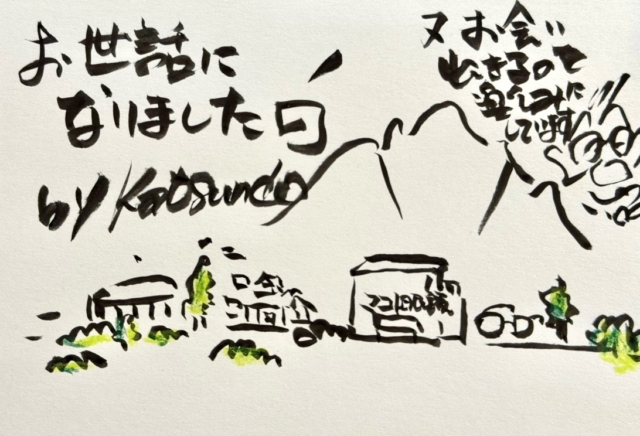 お世話に
なりました
by Katsundo
又お会い
できるのを
楽しみに
しています